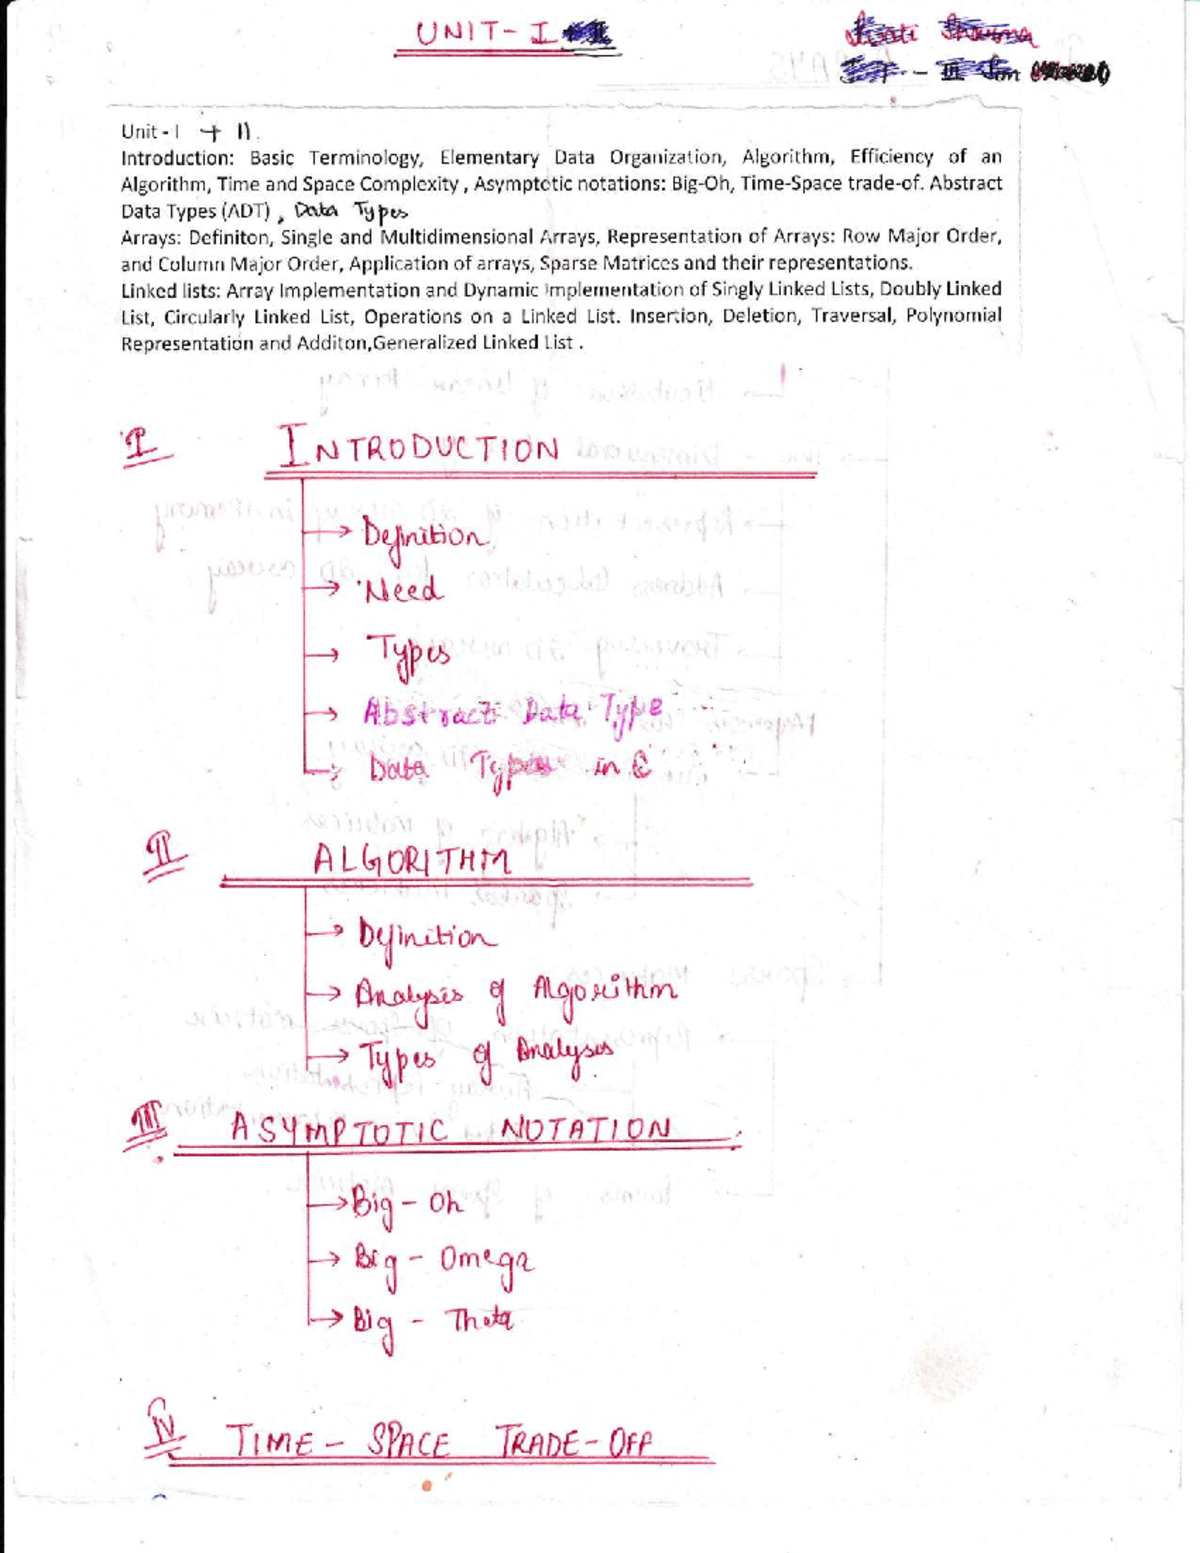 UNIT - I
Unit - I + II.
Introduction: Basic Terminology, Elementary Data Organization, Algorithm, Efficiency of an
Algorithm, Time and Space Complexity , Asymptotic notations: Big-Oh, Time-Space trade-of. Abstract
Data Types (ADT) , Data Types
Arrays: Definiton, Single and Multidimensional Arrays, Representation of Arrays: Row Major Order,
and Column Major Order, Application of arrays, Sparse Matrices and their representations.
Linked lists: Array Implementation and Dynamic Implementation of Singly Linked Lists, Doubly Linked
List, Circularly Linked List, Operations on a Linked List. Insertion, Deletion, Traversal, Polynomial
Representation and Additon,Generalized Linked List .
I INTRODUCTION
→ Definition
→ Need
→ Types
→ Abstract Data Type
→ Data Types in C
II ALGORITHM
→ Definition
→ Analysis of Algorithm
→ Types of Analysis
III ASYMPTOTIC NOTATION
→ Big - Oh
→ Big - Omega
→ Big - Theta
IV TIME - SPACE TRADE - OFF